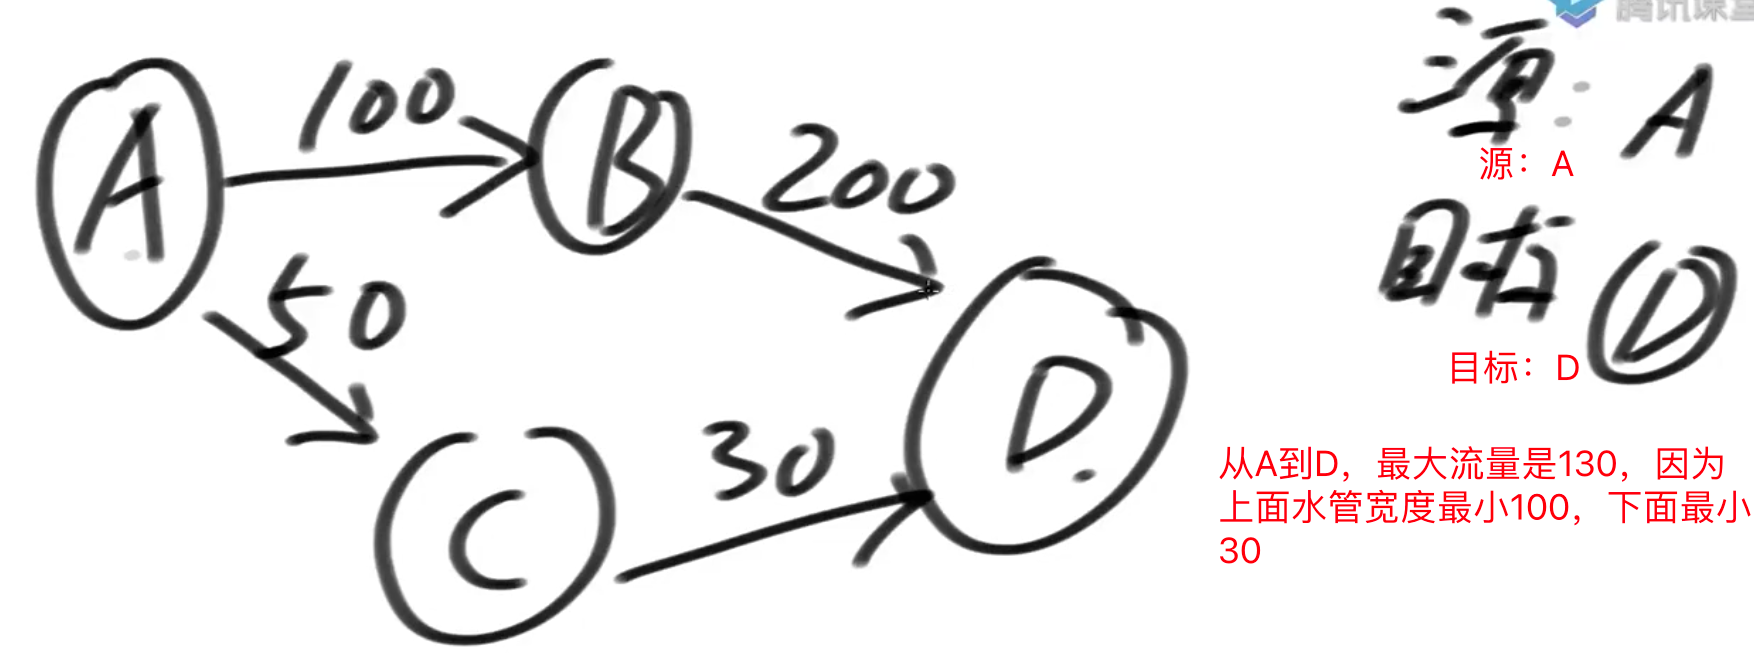 腾讯课堂
A
100
B
200
50
C
30
D
源: A
源：A
目标 D
目标：D
从A到D，最大流量是130，因为
上面水管宽度最小100，下面最小
30